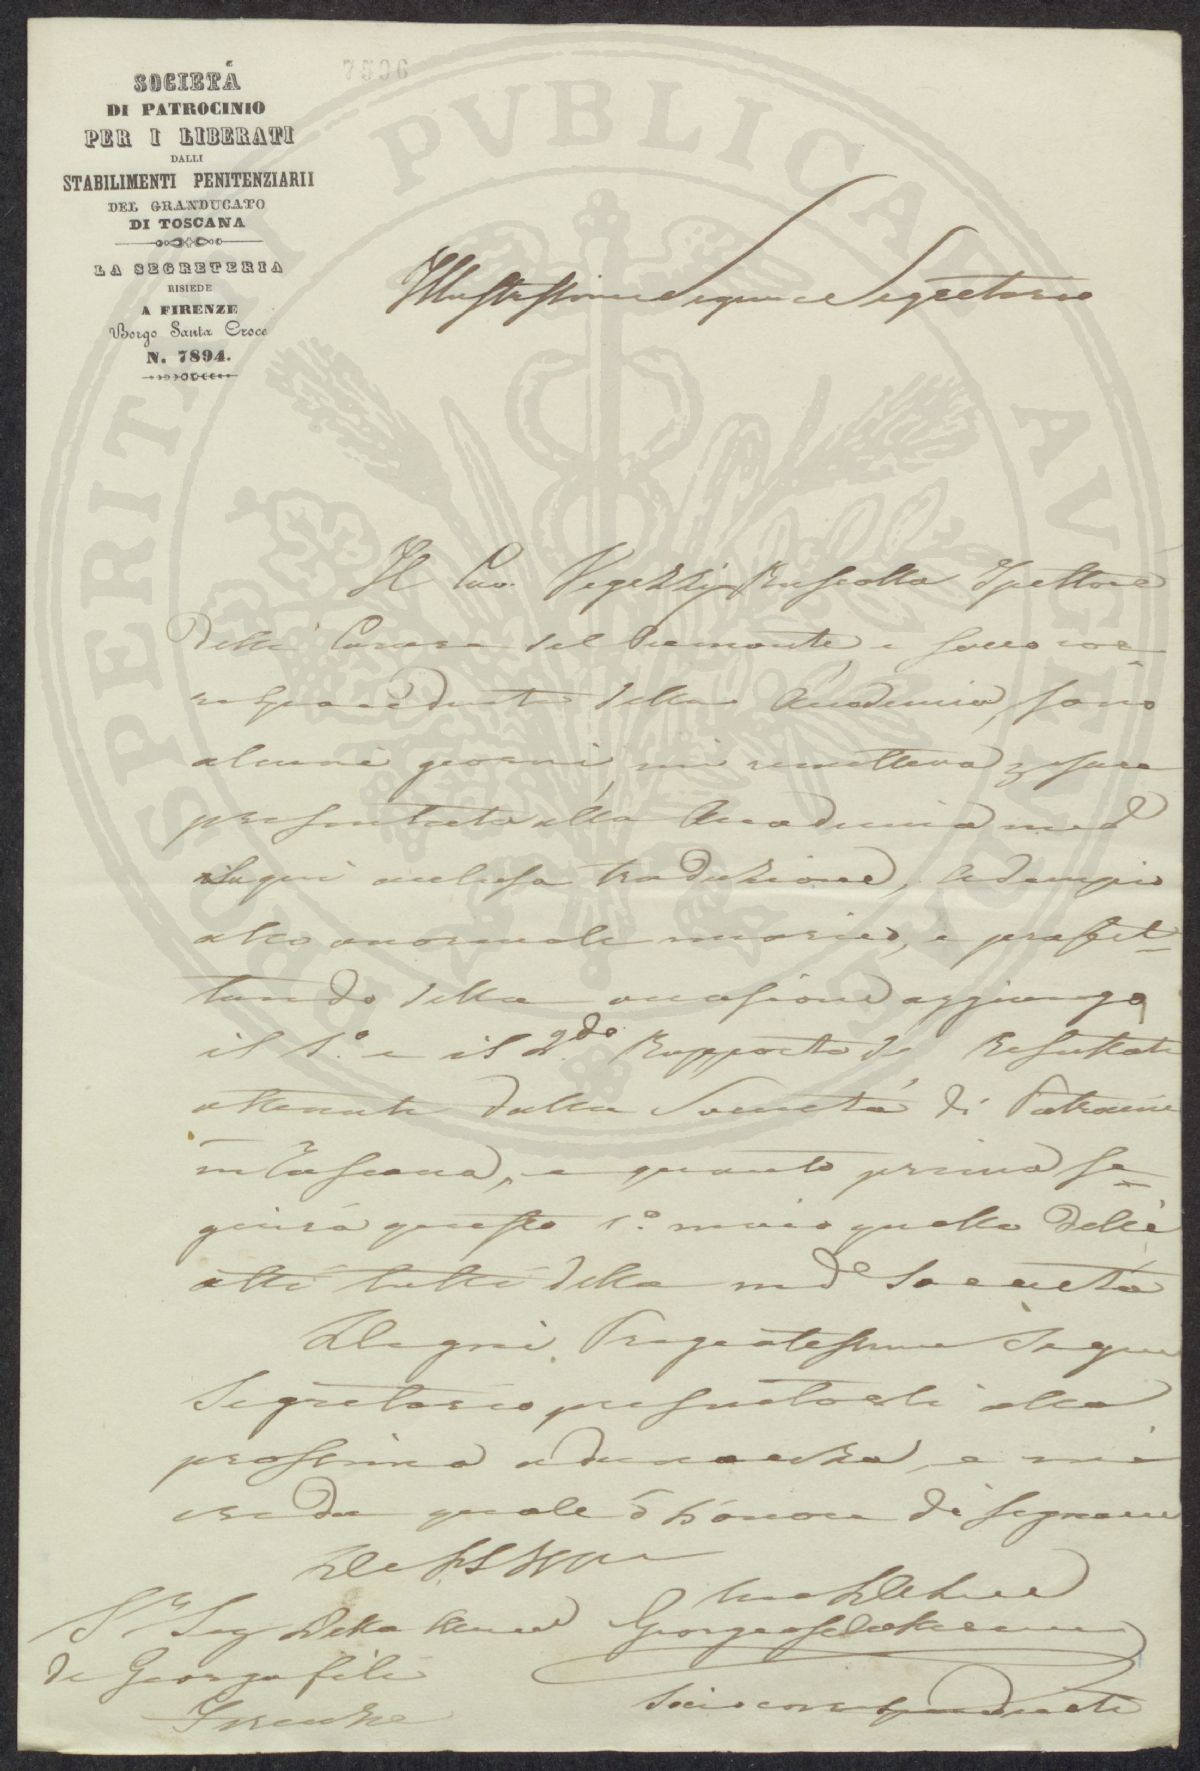 7596
SOCIETÁ
DI PATROCINIO
PER I LIBERATI
DALLI
STABILIMENTI PENITENZIARII
DEL GRANDUCATO
DI TOSCANA
LA SEGRETERIA
RISIEDE
A FIRENZE
Borgo Santa Croce
N. 7894.
PROSPERITATI PVBLICAE AVGENDAE
Illustrissimo Signore Segretario
Il Cav. Vegezzi Ruscalla Ispettore
delle Carceri del Piemonte, e socio cor-
rispondente della Accademia, sono
alcuni giorni, mi rimetteva
presentata alla Accademia
qui acclusa traduzione, Adempio
e profit-
tando della occasione aggiungo
il 1.º e il 2.do Rapporto de Resultati
ottenuti dalla Società di Patrocinio
in Toscana, e quanto prima se-
guirà questo 1.º quello delli
atti tutti della md.e Società
Degni Pregiatissimo Signore
Segretario presentarli alla
prossima adunanza, e mi
creda quale ò l'onore di segnarmi
Di VS Ill
Sr Seg della Accad
de Georgofili
Firenze
Socio corrispondente